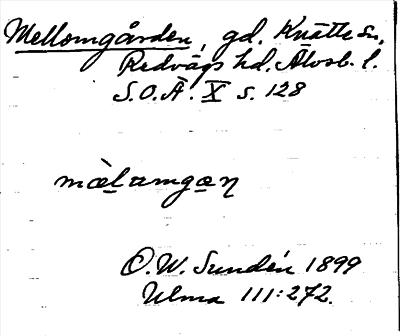 Mellomgården, gd. Knätte sn,
Redvägs hd. Älvsb. l.
S.O.Ä. X s. 128
mæ̀lamgæn
O.W. Sundén 1899
Ulma 111:272.